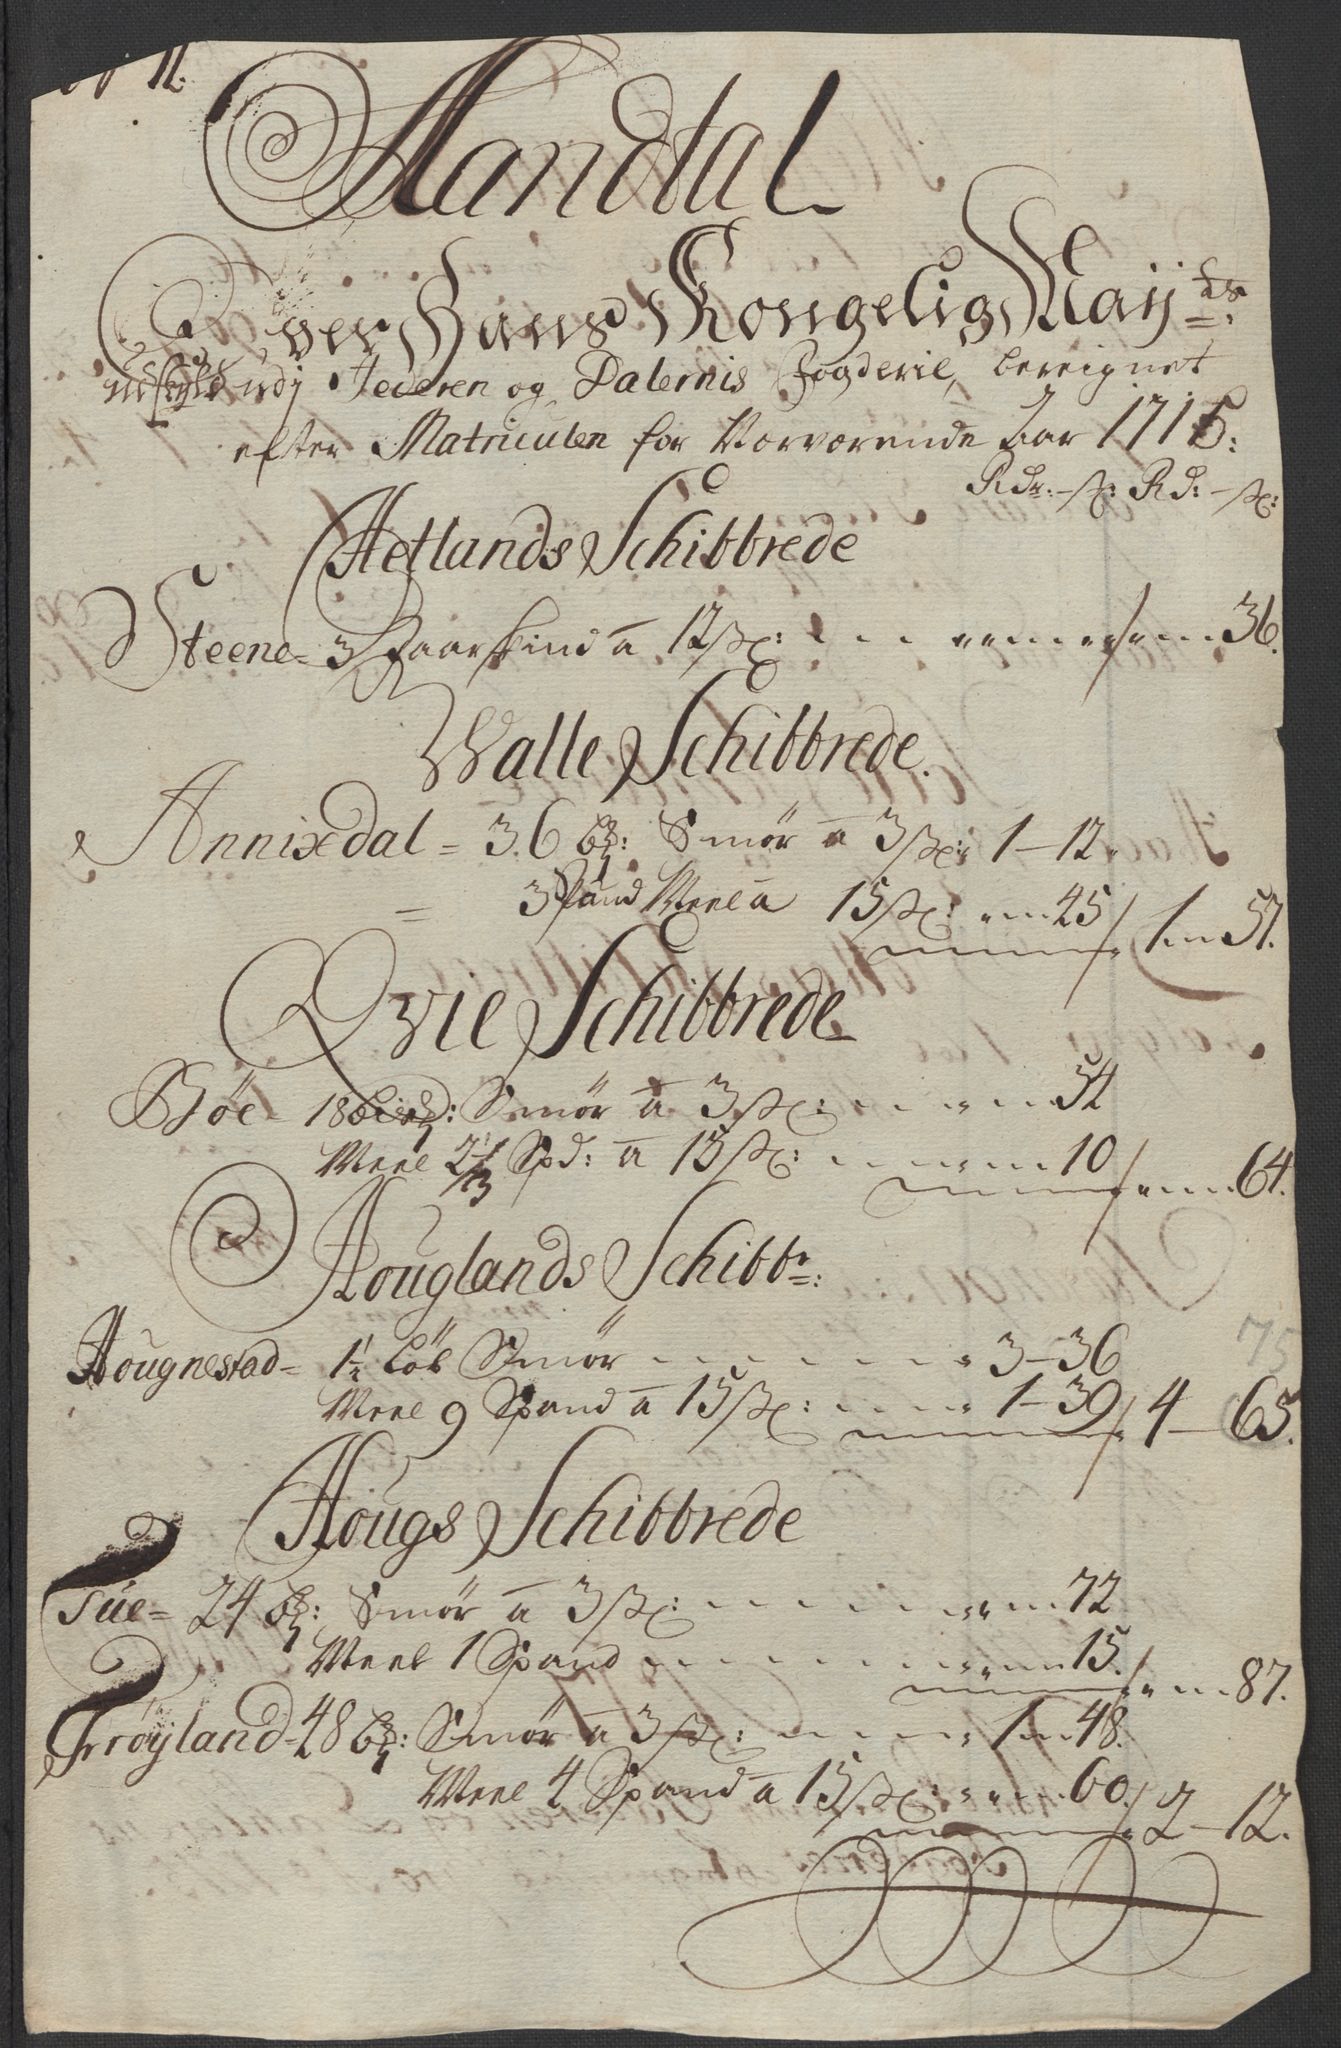 Mandtal
Over Hans Kongelig Maÿts:
udj Jederen og Dalernis Fogderie, bereignet
efter Matriculen for Nærværende Aar 1715:
Rdr: - ß: Rd: - ß:
Hetlands Schibbrede
Steene = 3 Faarskind a 12 ß: 36.
Walle Schibbrede.
Annixdal = 36 bß: Smör a 3 ß: 1 - 12
= 3 Spand Meel a 15 ß: 45 / 1 57.
Qvie Schibbrede
Böe - 18 Smör a 3 ß: 54
Meel 2/3 Spd: a 15 ß: 10 / 64.
Houglands Schibbr:
Hougnestad = 1½ Löb Smör 3 - 36
Meel 9 Spand a 15 ß: 1 - 39 / 4 - 65.
75
Hougs Schibbrede
Tüe = 24 bß: Smör a 3 ß: 72
Meel 1 Spand 15. / 87.
Fröÿland - 48 bß: Smör a 3 ß: 1 48.
Meel 4 Spand a 15 ß: 60. / 2 - 12.